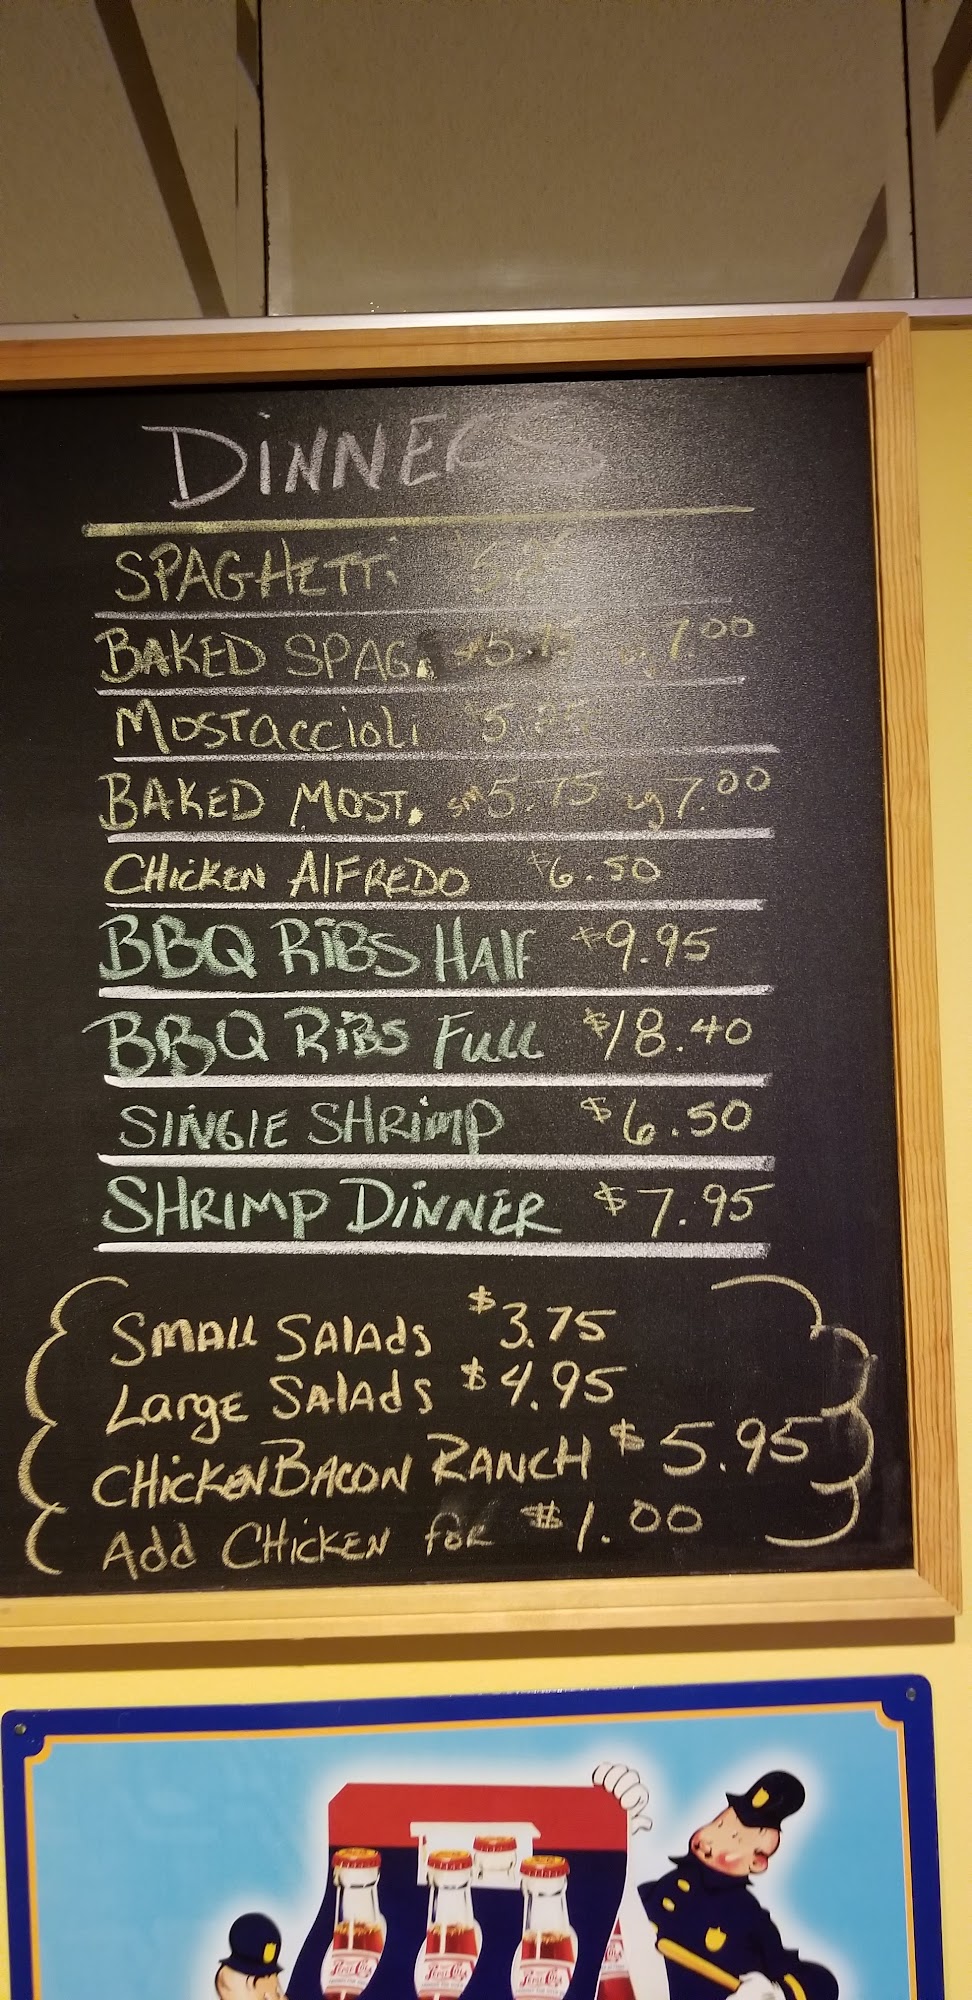 DINNERS
SPAGHETTi
BAKED SPAG. 7.00
MOSTACCIOLI $5.25
BAKED MOST. sm 5.75 Lg 7.00
CHiCKEN AlFREDO $6.50
BBQ RiBS HAlF $9.95
BBQ RiBS Full $18.40
SiNGlE SHRimp $6.50
SHRIMP DiNNER $7.95
SMAll SALAdS $3.75
LargE SALAdS $4.95
CHicKEN BACON RANCH $5.95
Add CHicKEN foR $1.00
Pepsi-Cola
Pepsi-Cola
Pepsi-Cola